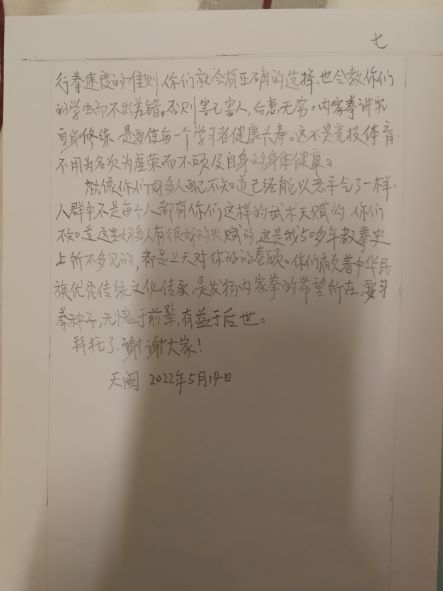 七
行拳速度的准则,你们就会有正确的选择,也会教你们
的学生而不出差错,否则害己害人,后患无穷。内家拳讲求
自身修练,是要使每一个学习者健康长寿。这不是竞技体育,
不用为名次为虚荣而不顾及自身的身体健康。
你们自己不知道已经能以
人群中不是每个人都有你们这样的武术天赋的,你们
不知道这里好多人有很好的天赋的,这是我50多年教拳史
上所不多见的,都是上天对你们的眷顾。你们肩负着中华民
族优秀传统文化传承,是发扬内家拳的希望所在,要习
拳种子,无愧于前辈,有益于后世。
拜托了,谢谢大家!
天阙 2022年5月14日